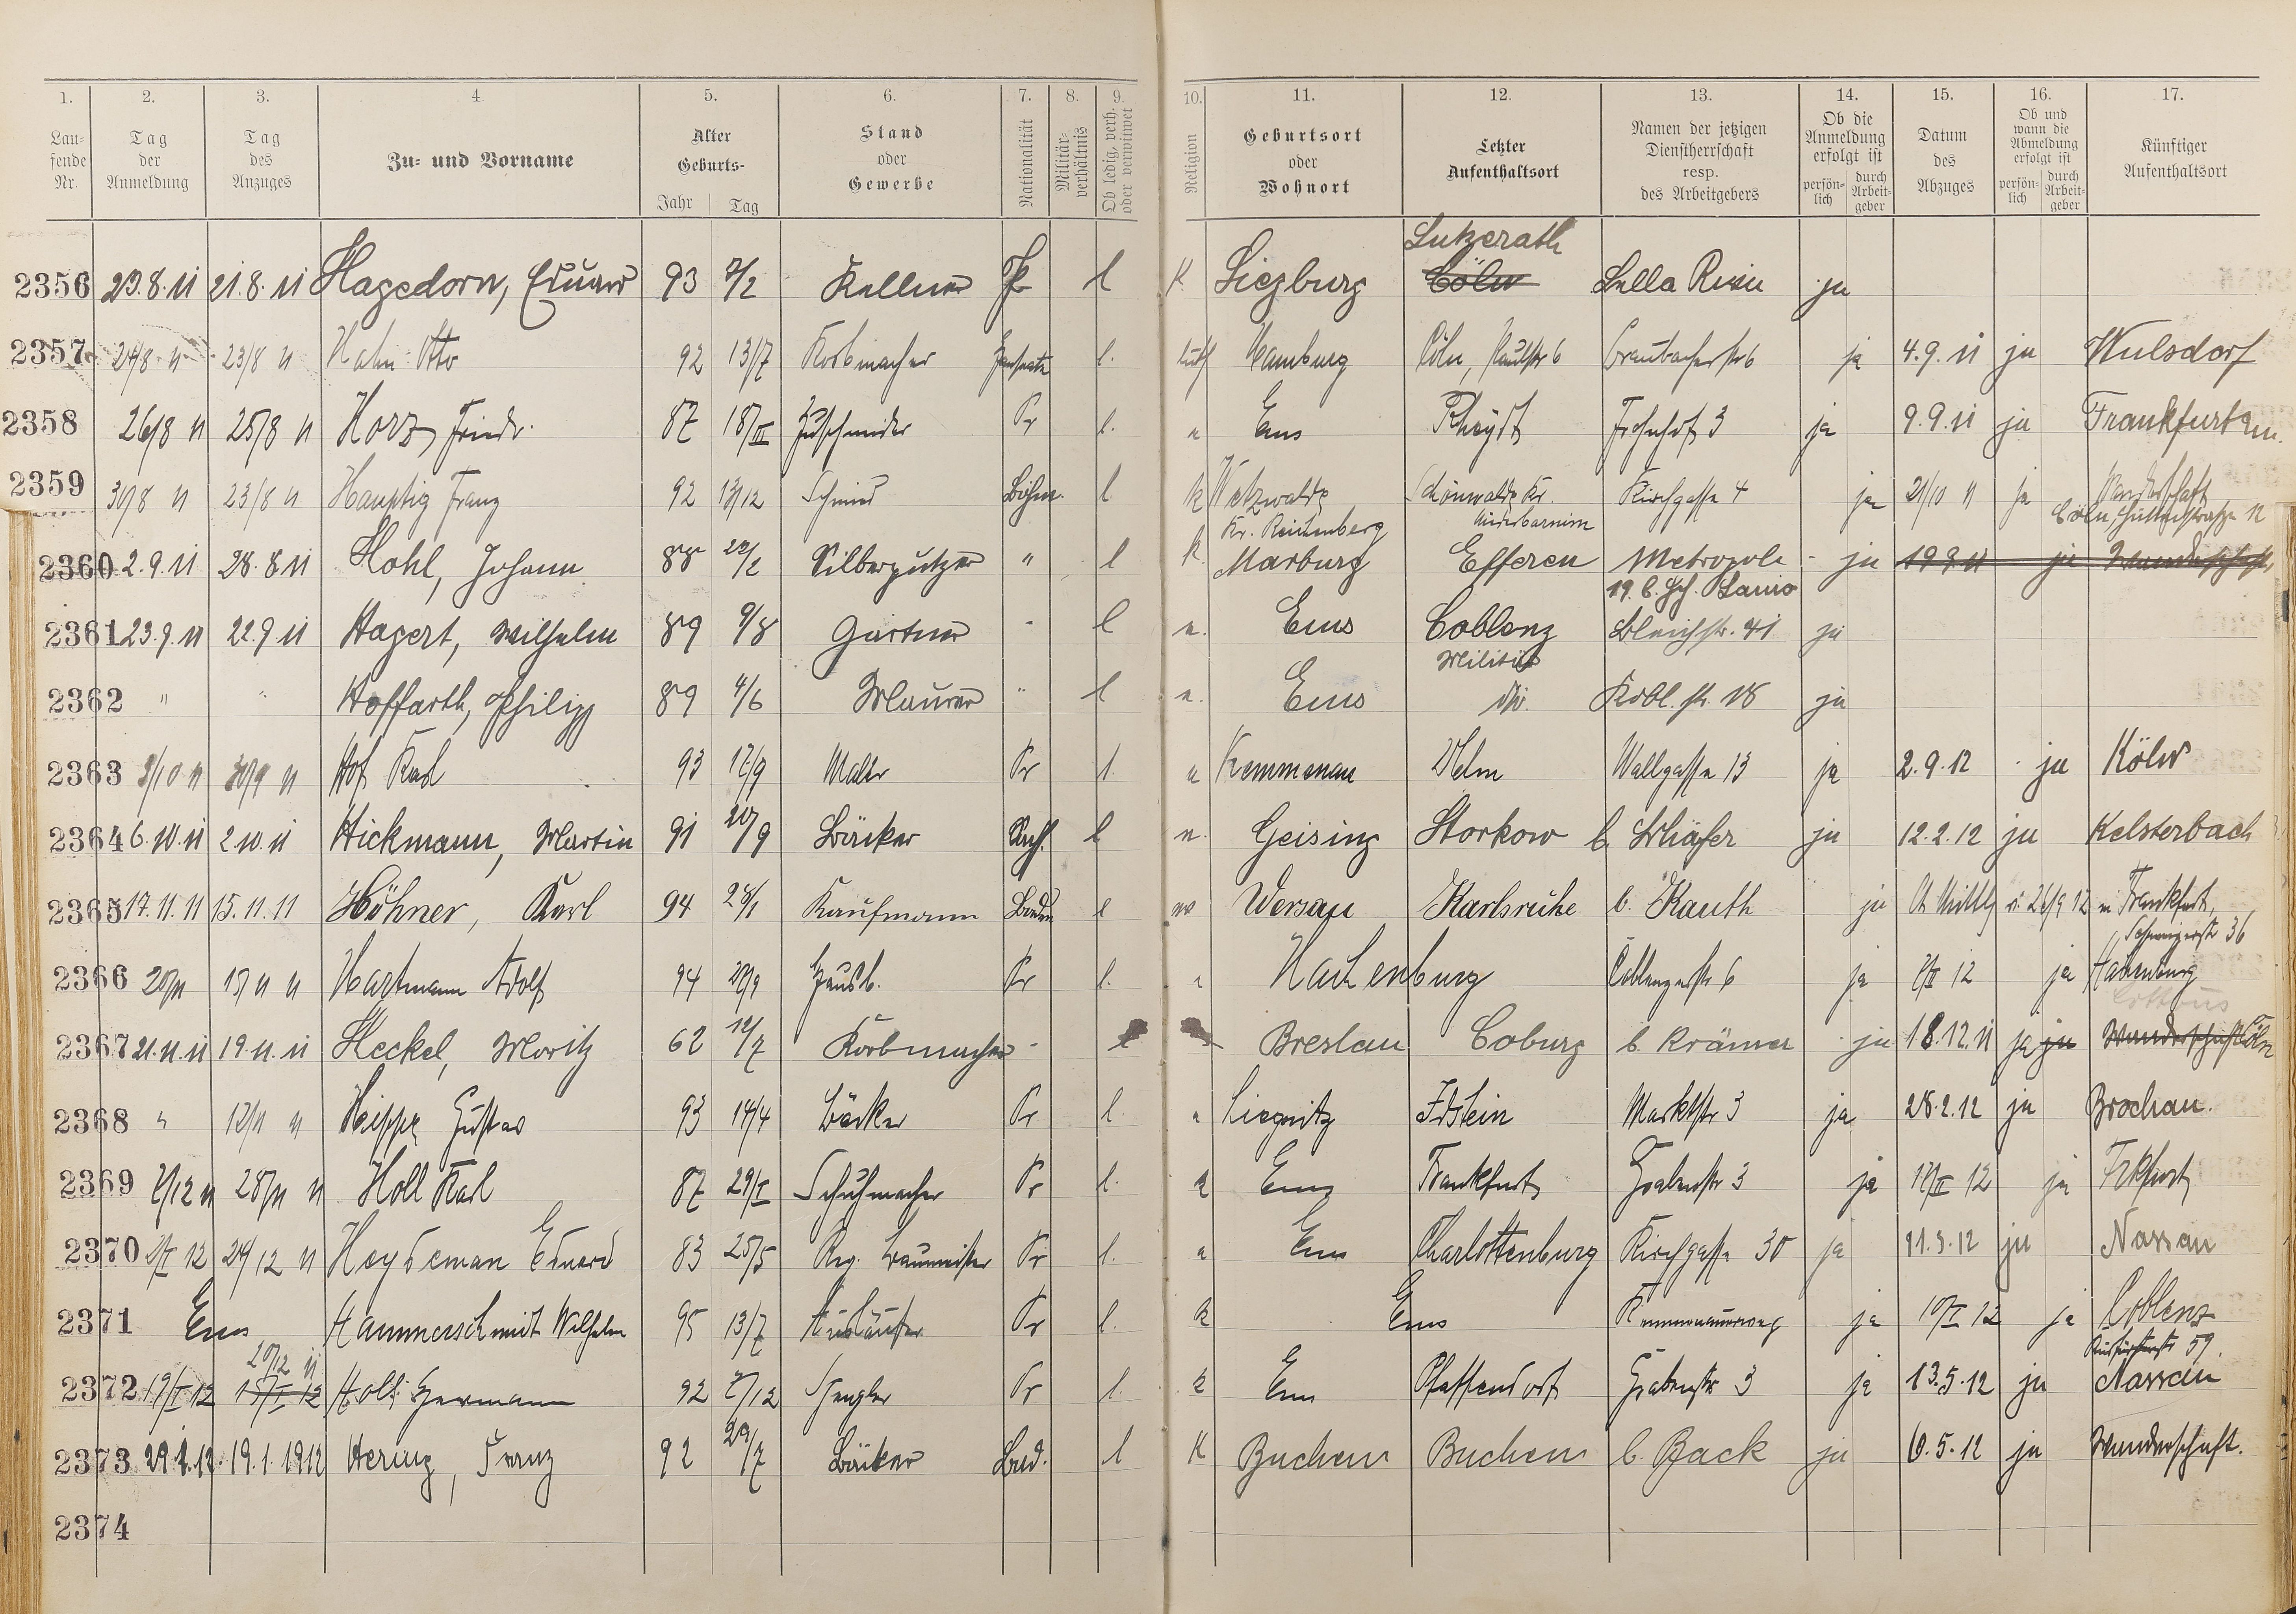 1. 2. 3. 4. 5. 6. 7. 8. 9. 10. 11. 12. 13. 14. 15. 16. 17.
Lau-fende Nr. Tag der Anmeldung Tag des Anzuges Zu- und Vorname Alter Geburts- Jahr Tag Stand oder Gewerbe Nationalität Militär-verhältnis Ob ledig, verh. oder verwitwet Religion Geburtsort oder Wohnort Letzter Aufenthaltsort Namen der jetzigen Dienstherrschaft resp. des Arbeitgebers Ob die Anmeldung erfolgt ist persön-lich durch Arbeit-geber Datum des Abzuges Ob und wann die Abmeldung erfolgt ist persön-lich durch Arbeit-geber Künftiger Aufenthaltsort
Lutzerath
2356 23.8.11 21.8.11 Hagedorn, Eduard 93 7/2 Kellner Pr l K Siegburg Cöln ja
2357 24/8 11 23/8 11 Hahn Otto 92 13/7 Korbmacher l. luth Hamburg Cöln, 6 ja 4.9.11 ja Wulsdorf
2358 26/8 11 25/8 11 Horz Friedr. 87 18/II Zuschneider Pr l. e Ems Rheydt Frohnhof 3 ja 9.9.11 ja Frankfurt a.m.
2359 30/8 11 23/8 11 Hauptig Franz 92 13/12 Schmied Böhm. l k Wetzwalde Schönwalde Kr. Kirchgasse 4 ja 21/10 11 ja Wanderschaft
Kr. Reichenberg Niederbarnim Cöln, 12
2360 2.9.11 28.8.11 Hohl, Johann 88 22/2 Silberputzer " l k Marburg Efferen Metropole ja 19.9.11 ja Wanderschaft
19. b. Lanio
2361 23.9.11 22.9.11 Hagert, Wilhelm 89 9/8 Gärtner " l e. Ems Coblenz Bleichstr. 41 ja
Militär
2362 " " Hoffarth, Philipp 89 4/6 Maurer " l e. Ems do. Kobl. str. 18 ja
2363 3/10 11 30/9 11 Hof Karl 93 17/9 Maler Pr l. e Kemmenau Ulm Wallgasse 13 ja 2.9.12 ja Köln
2364 6.10.11 2.10.11 Hickmann, Martin 91 20/9 Bäcker Sachs. l e. Geising Storkow b. Schäfer ja 12.2.12 ja Kelsterbach
2365 17.11.11 15.11.11 Höhner, Karl 94 28/1 Kaufmann Baden l ev Wersau Karlsruhe b. Kauth ja v. 26/9 12 in Frankfurt,
36
2366 20/11 15/11 11 Hartmann Adolf 94 28/9 Hausb. Pr l. e Hachenburg Coblenzerstr 6 ja 12 ja Hachenburg
Cottbus
2367 21.11.11 19.11.11 Heckel, Moritz 62 12/7 Korbmacher " l Breslau Coburg b. Krämer ja 18.12.11 ja ja Wanderschaft Cöln
2368 " 12/11 11 Heippe Gustav 93 14/4 Bäcker Pr l. e Liegnitz Idstein Marktstr 3 ja 28.2.12 ja Brochau.
2369 2/12 11 28/11 11 Holl Karl 87 29/I Schuhmacher Pr l. k Ems Frankfurt Grabenstr 3 ja 12/II 12 ja Frkfurt
2370 2/I 12 24/12 11 Heydeman Eduard 83 25/5 Reg. Baumeister Pr l. e Ems Charlottenburg Kirchgasse 30 ja 11.3.12 ja Nassau
2371 Ems Hammerschmidt Wilhelm 95 13/7 Ausläufer Pr l. k Ems Kemmenauerweg ja 10/I 12 ja Coblenz
20/12 11 59.
2372 19/I 12 15/I 12 Holl Hermann 92 2/12 Spengler Pr l. k Ems Pfaffendorf Grabenstr 3 ja 13.5.12 ja Nassau
2373 29.1.12 19.1.1912 Hering, Franz 92 29/7 Bäcker Bad. l K Buchen Buchen b. Back ja 6.5.12 ja Wanderschaft.
2374